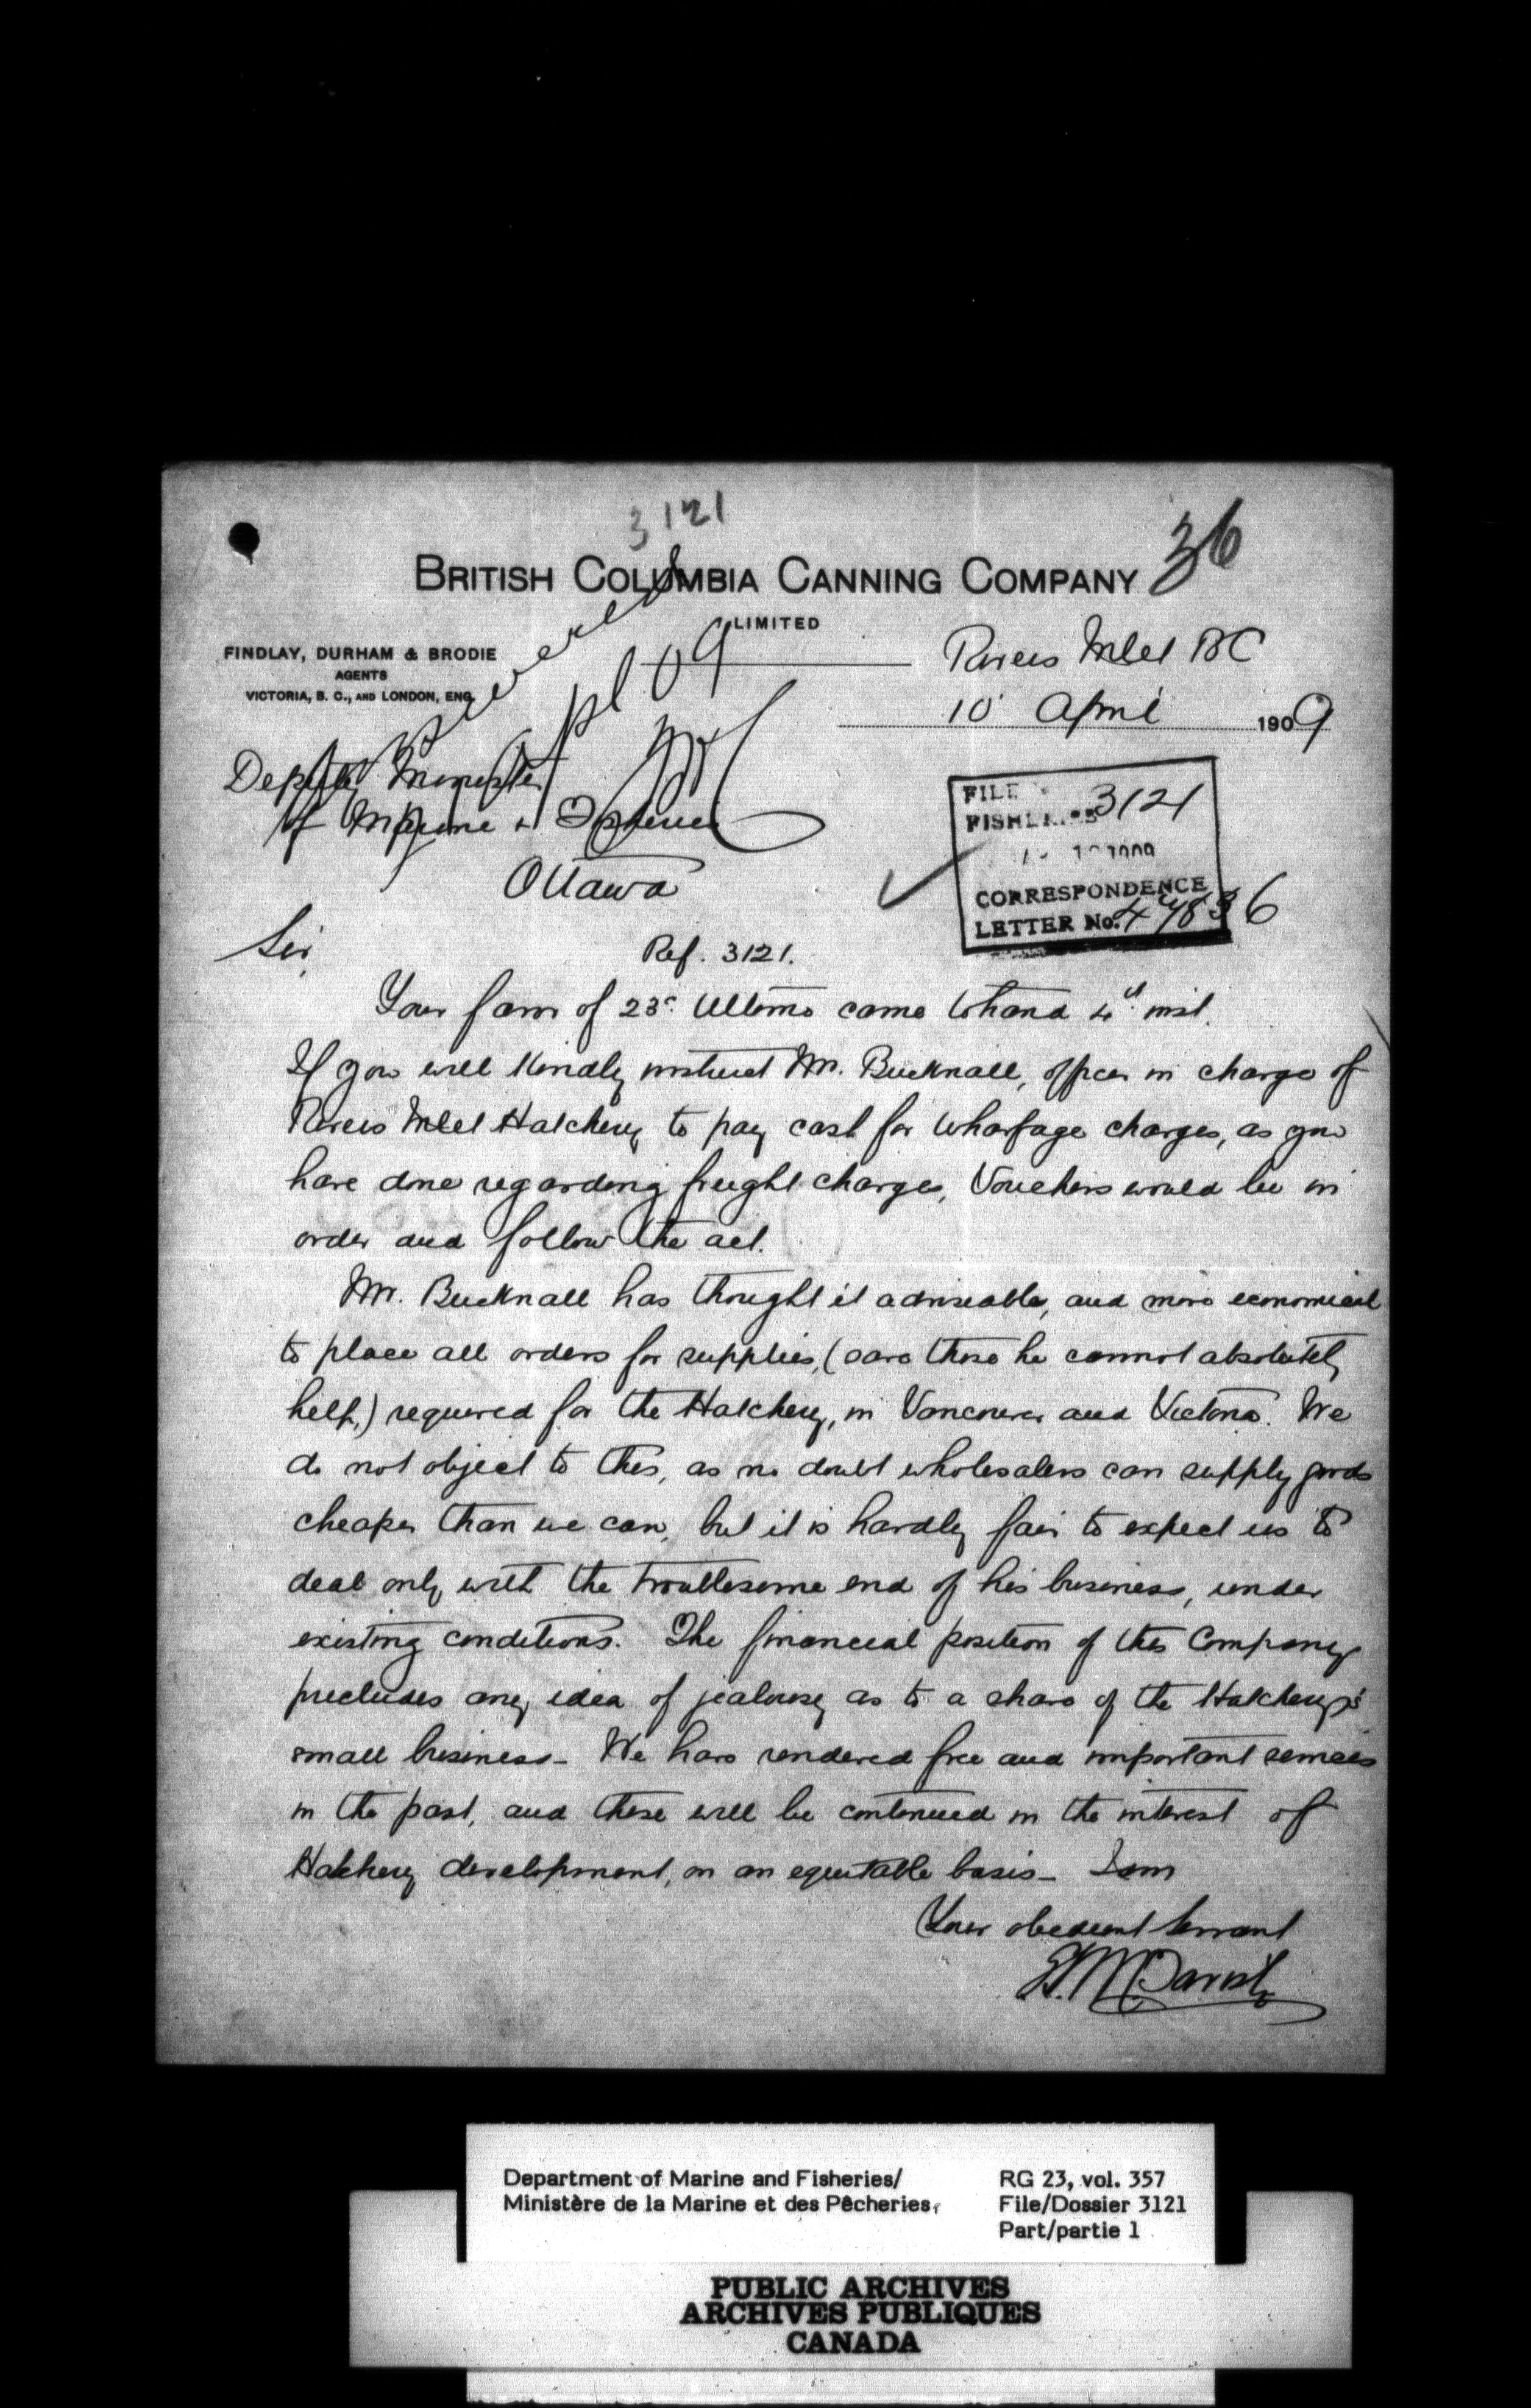 3121
36
BRITISH COLUMBIA CANNING COMPANY
LIMITED
FINDLAY, DURHAM & BRODIE
AGENTS
VICTORIA, B. C., AND LONDON, ENG.
Rivers Inlet BC
10 April 1909
Deputy Minister
of Marine & Fisheries
Ottawa
FILE 3121
FISHERIES
1909
CORRESPONDENCE
LETTER No.
Sir,
Ref. 3121.
Your favor of 23d Ultimo came to hand 4th inst.
If you will kindly instruct Mr. Bucknall, officer in charge of
Rivers Inlet Hatchery to pay cash for wharfage charges, as you
have done regarding freight charges, Vouchers would be in
order and follow the act.
Mr. Bucknall has thought it adviseable, and more economical
to place all orders for supplies, (save those he cannot absolutely
help,) required for the Hatchery, in Vancouver and Victoria. We
do not object to this, as no doubt wholesalers can supply goods
cheaper than we can, but it is hardly fair to expect us to
deal only with the troublesome end of his business, under
existing conditions. The financial position of this Company
precludes any idea of jealousy as to a share of the Hatchery's
small business - We have rendered free and important services
in the past, and these will be continued in the interest of
Hatchery development, on an equitable basis - I am
Your obedient Servant
Department of Marine and Fisheries/
Ministère de la Marine et des Pêcheries,
RG 23, vol. 357
File/Dossier 3121
Part/partie 1
PUBLIC ARCHIVES
ARCHIVES PUBLIQUES
CANADA